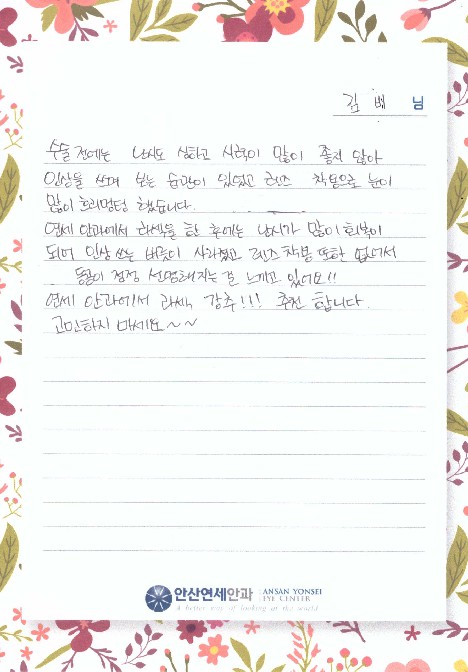 김 배 님
수술 전에는 난시도 심하고 시력이 많이 좋지 않아
인상을 쓰며 보는 습관이 있었고 렌즈 착용으로 눈이
많이 흐리멍텅 했습니다.
연세 안과에서 라섹을 한 후에는 난시가 많이 회복이
되어 인상 쓰는 버릇이 사라졌고 렌즈 착용 또한 없어서
눈이 점점 선명해지는 걸 느끼고 있어요!!
연세 안과에서 라섹 강추!!! 추천 합니다.
고민하지 마세요~~
안산연세안과 ANSAN YONSEI EYE CENTER
A better way of looking at the world